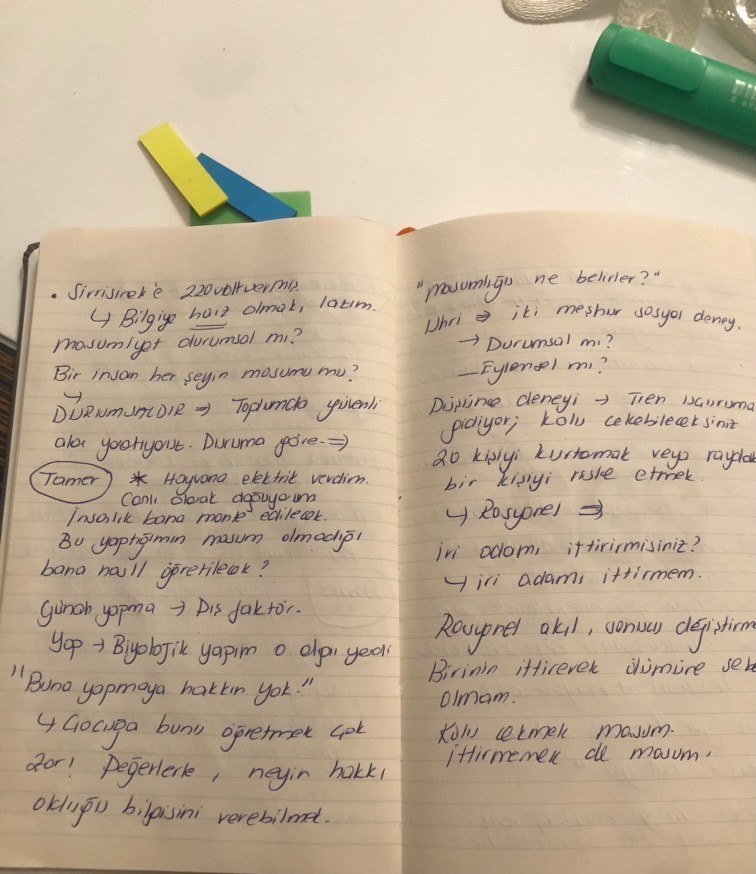 • Sirrisinek'e 220 volt vermiş
↳ Bilgiye haiz olmak, lazım.
masumiyet durumsal mı?
Bir insan her şeyin masumu mu?
↳ DURUMSALDIR ⇒ Toplumda güvenli
alan yaratıyoruz. Duruma göre ⇒
Tamer * Hayvana elektrik verdim.
Canlı olarak doğuyorum
İnsanlık bana monte edilecek.
Bu yaptığımın masum olmadığı
bana nasıl öğretilecek?
Günah yapma → Dış faktör.
Yap → Biyolojik yapım o algı yedi
"Buna yapmaya hakkın yok."
↳ Çocuğa bunu öğretmek çok
zor! Değerlerle, neyin hakkı
olduğu bilgisini verebilmek.
"masumluğu ne belirler?"
Uhri ⇒ iki meşhur sosyal deney.
→ Durumsal mı?
— Eylemsel mi?
Düşünce deneyi → Tren uçuruma
gidiyor; kolu çekebileceksiniz
20 kişiyi kurtarmak veya raydak
bir kişiyi riske etmek.
↳ Rasyonel ⇒
iri adamı ittirirmisiniz?
↳ iri adamı ittirmem.
Rasyonel akıl, sonucu değiştirm
Birinin ittirerek ölümüne seb
olmam.
Kolu çekmek masum.
ittirmemek de masum.